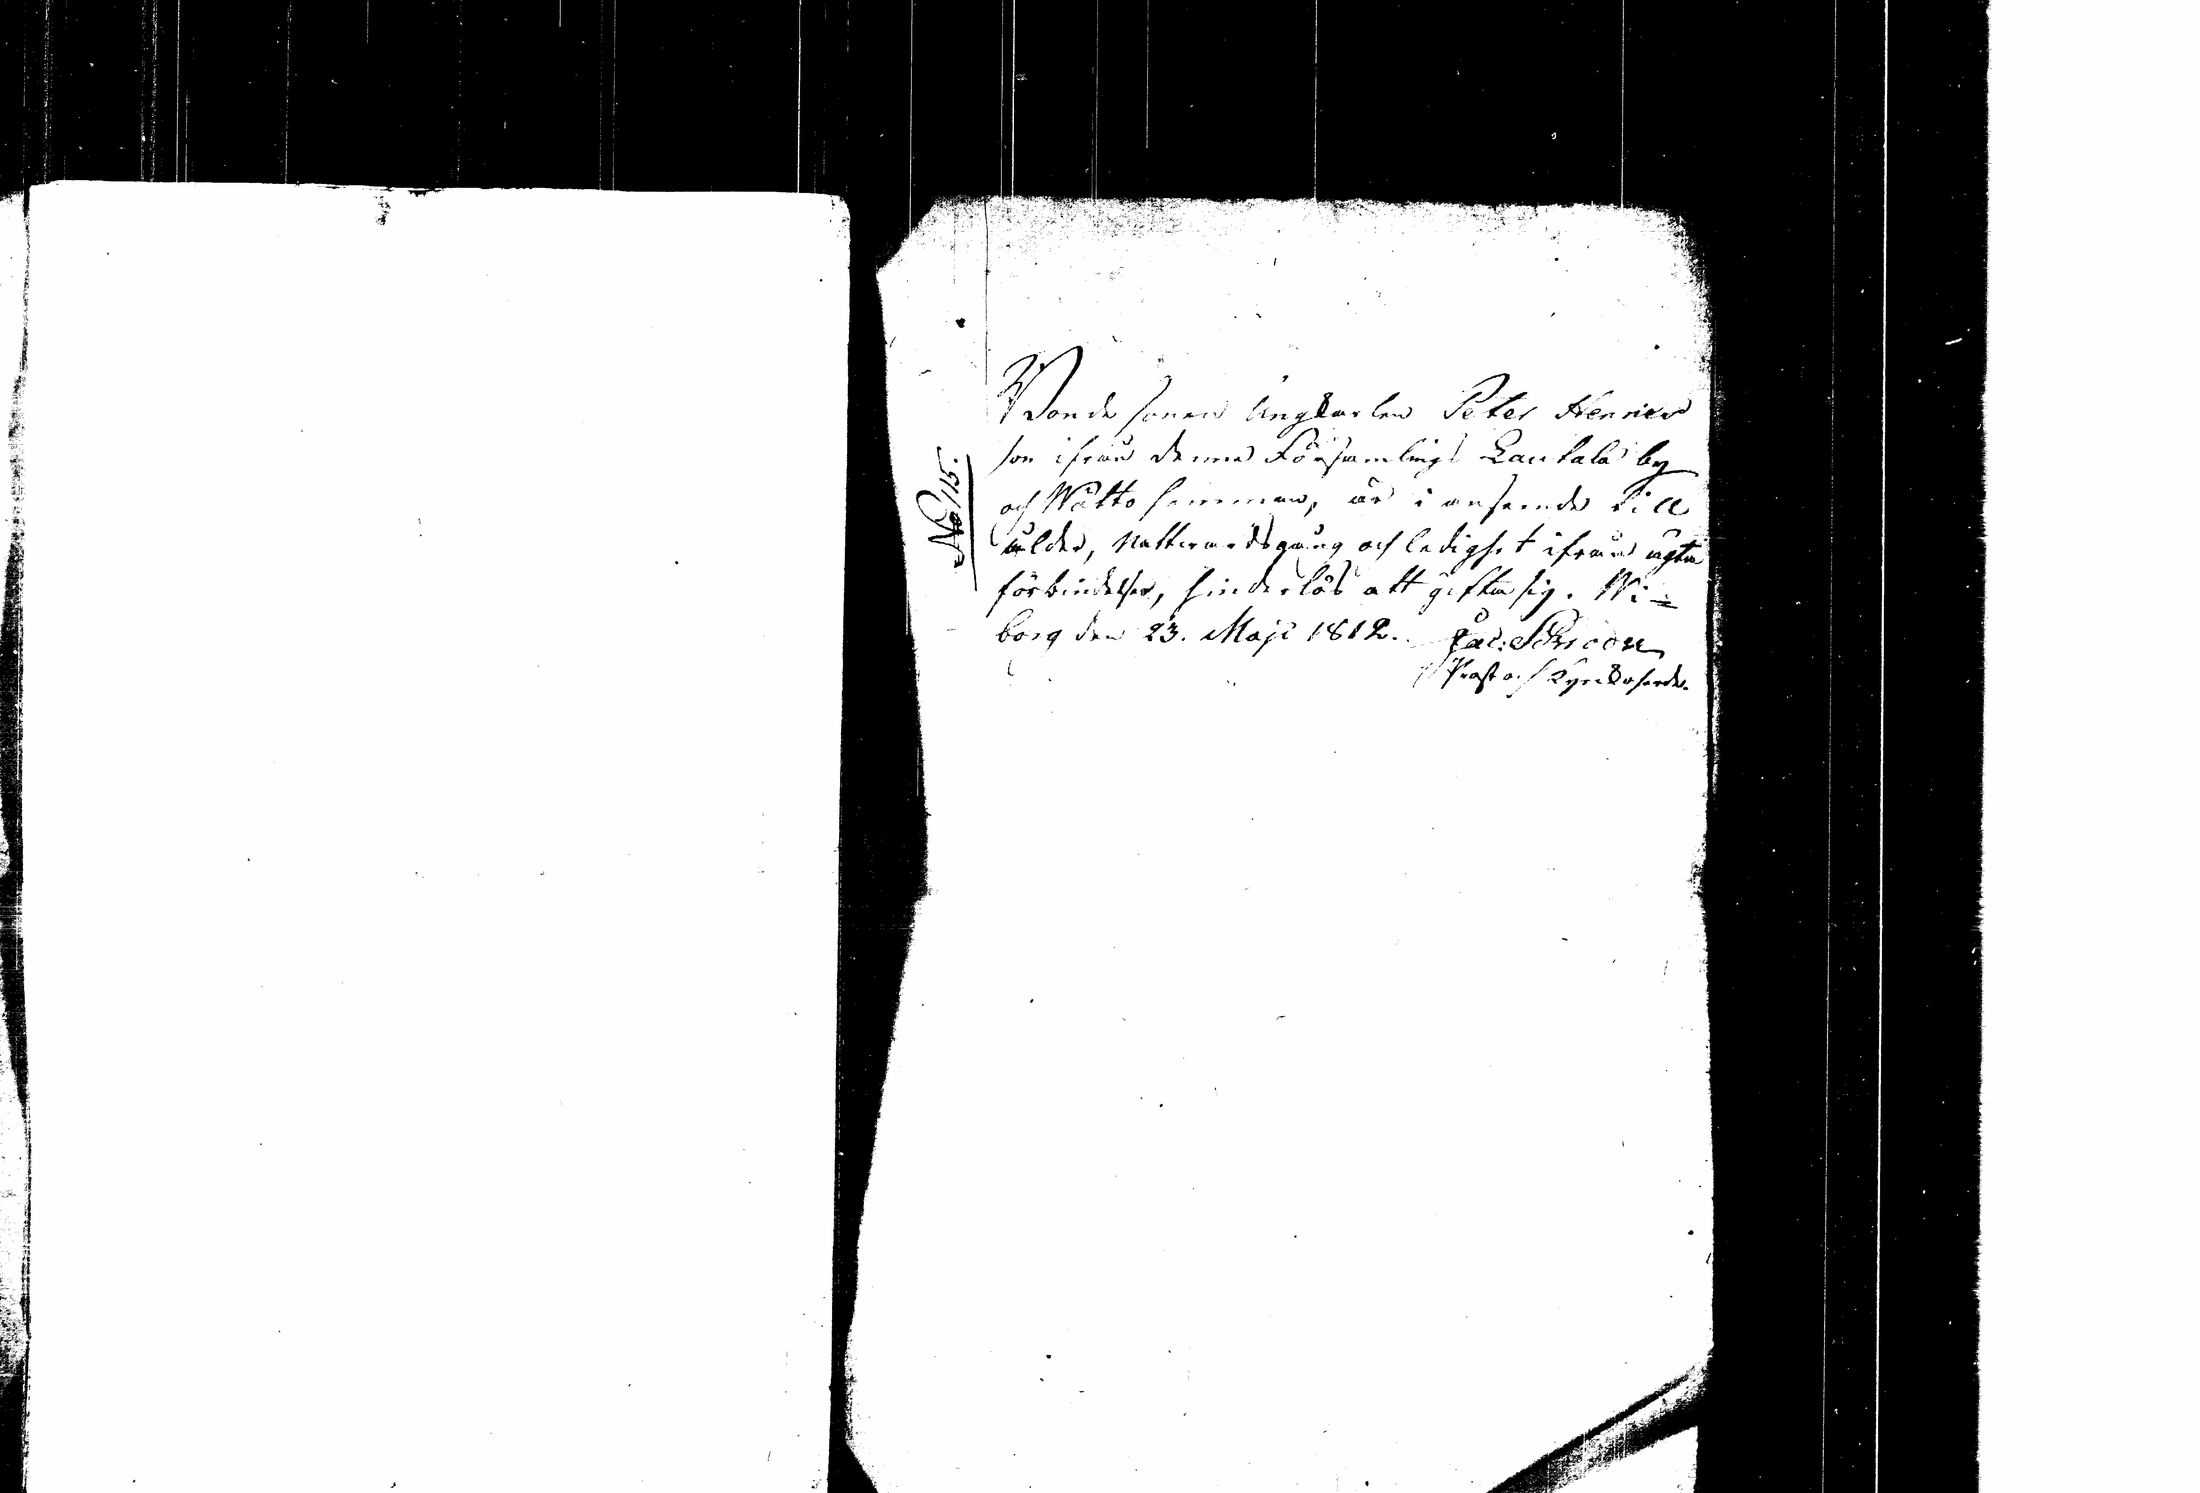 No 115.
Bonde sonen Ungkarlen Peter Henrics
son ifrån denna Församlings Lautala by
och Wätto hemman, är i anseende till
ålder, Nattwardsgång och ledighet ifrån ägta
förbindelser, hinderlös att gifta sig. Wi=
borg den 23. Maji 1812. Jac:
Prost och Kyrckoherde.